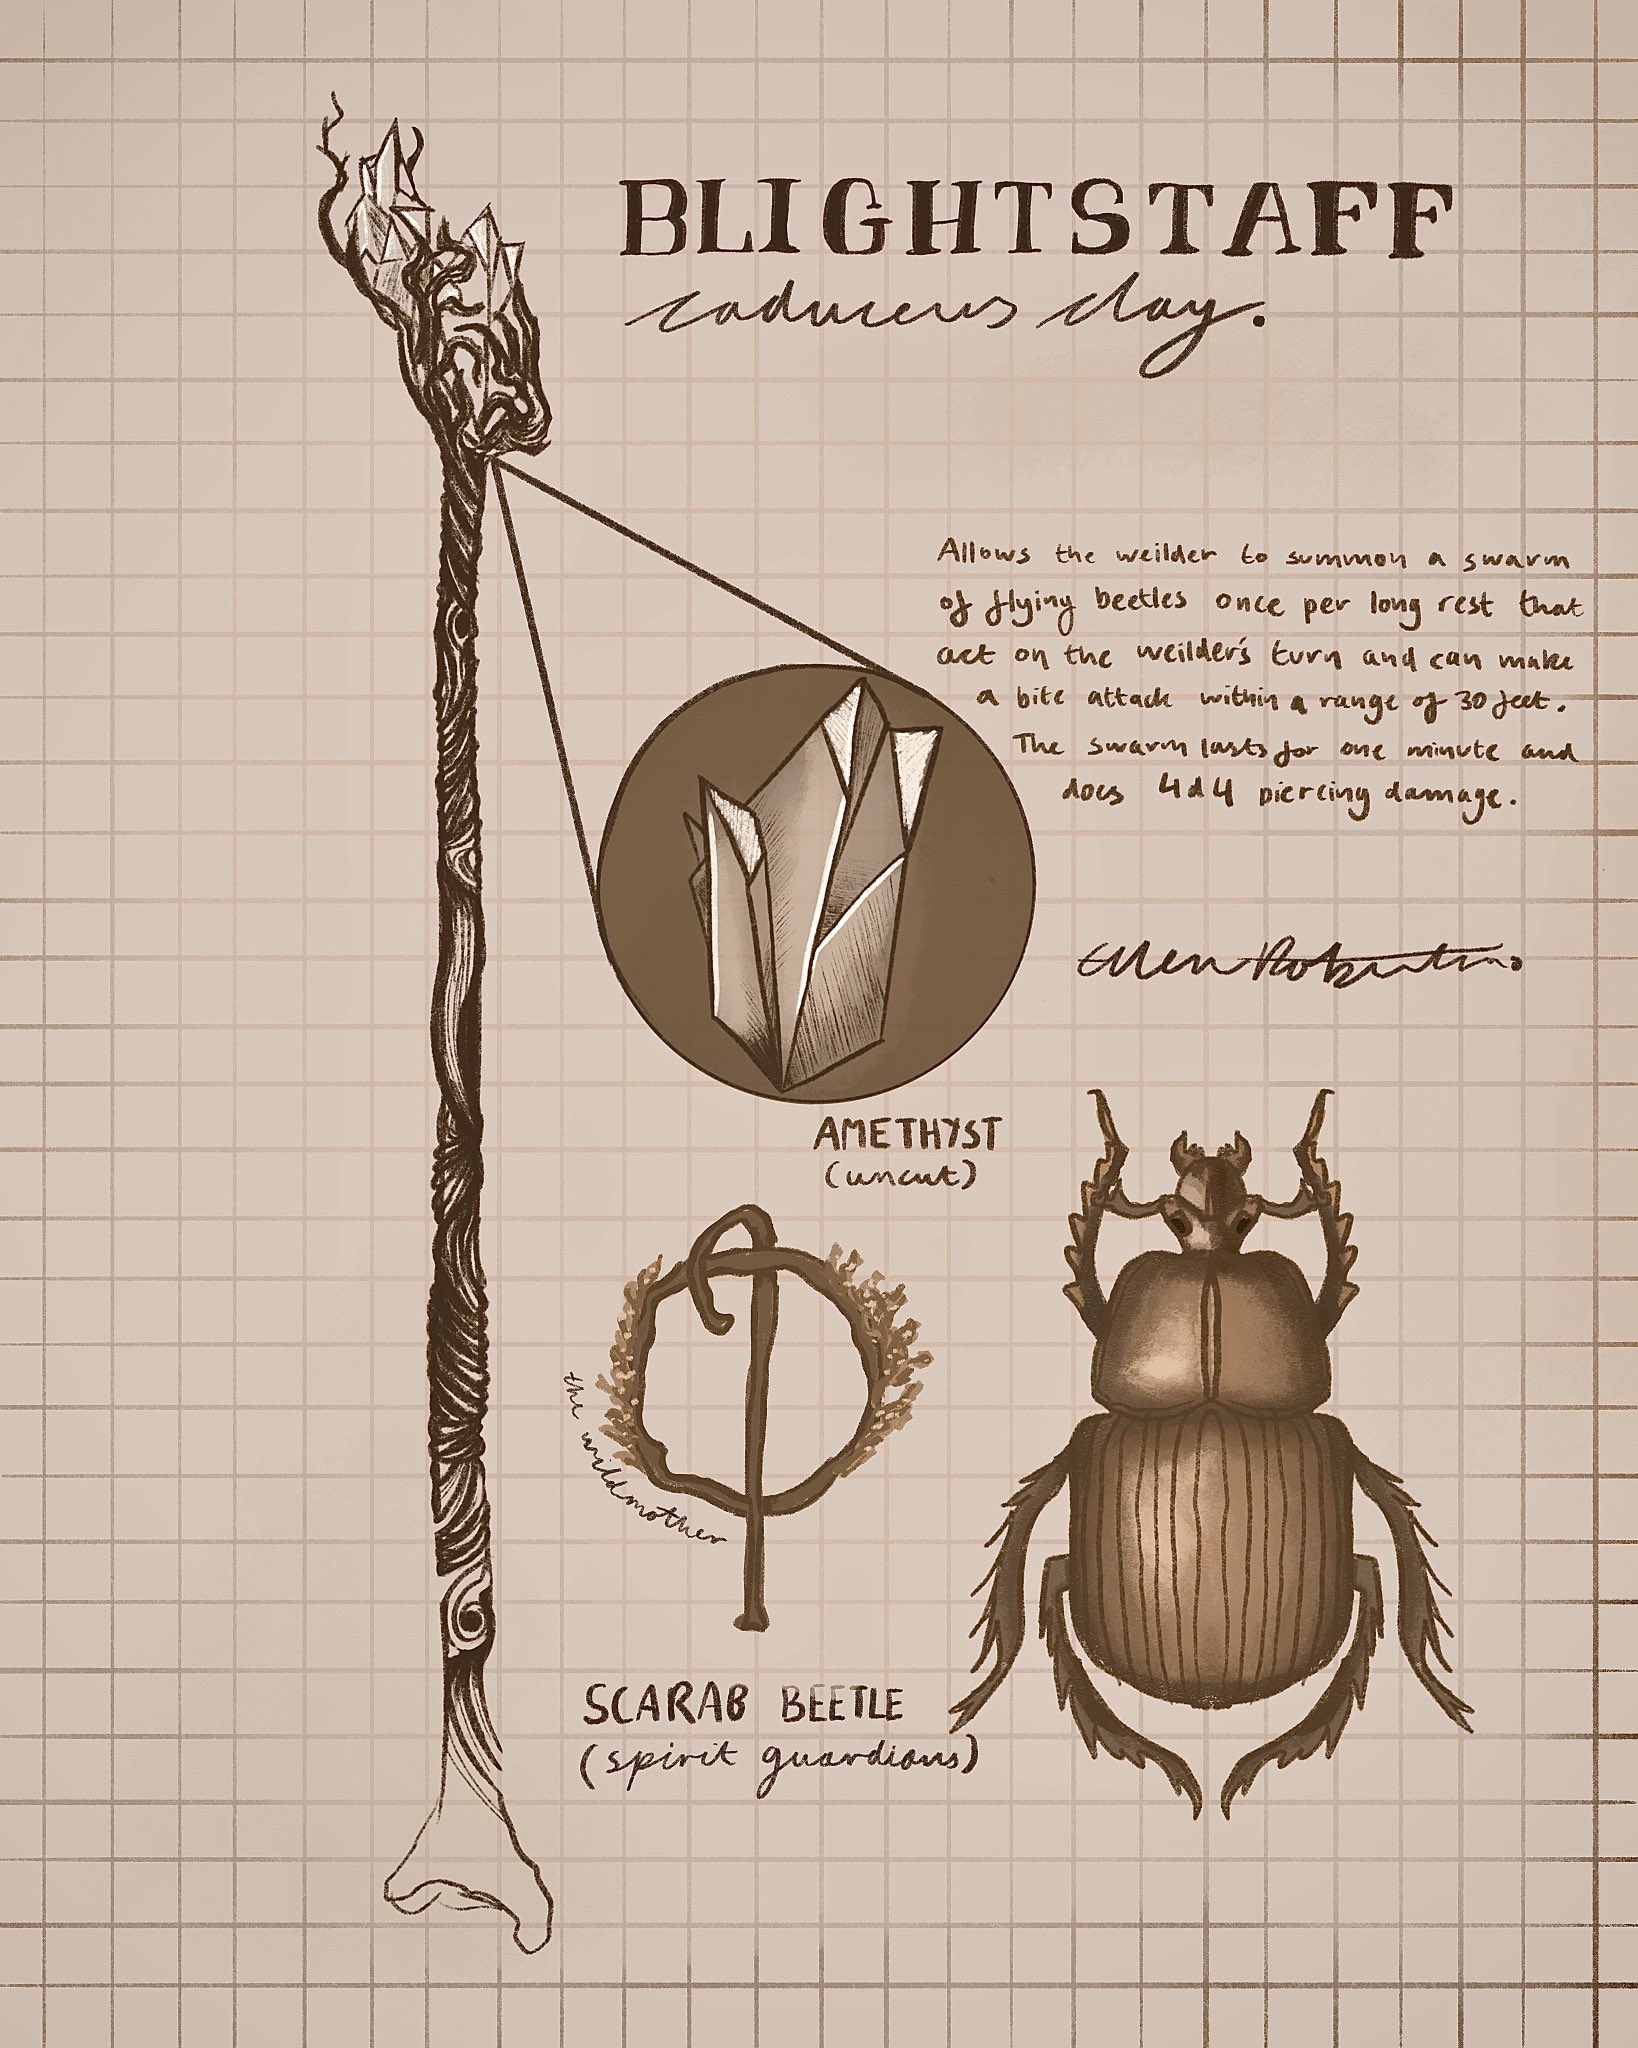 BLIGHTSTAFF
caduceus clay.
Allows the weilder to summon a swarm
of flying beetles once per long rest that
act on the weilder's turn and can make
a bite attack within a range of 30 feet.
The swarm lasts for one minute and
does 4d4 piercing damage.
Ellen Robertson
AMETHYST
(uncut)
the wildmother
SCARAB BEETLE
(spirit guardians)